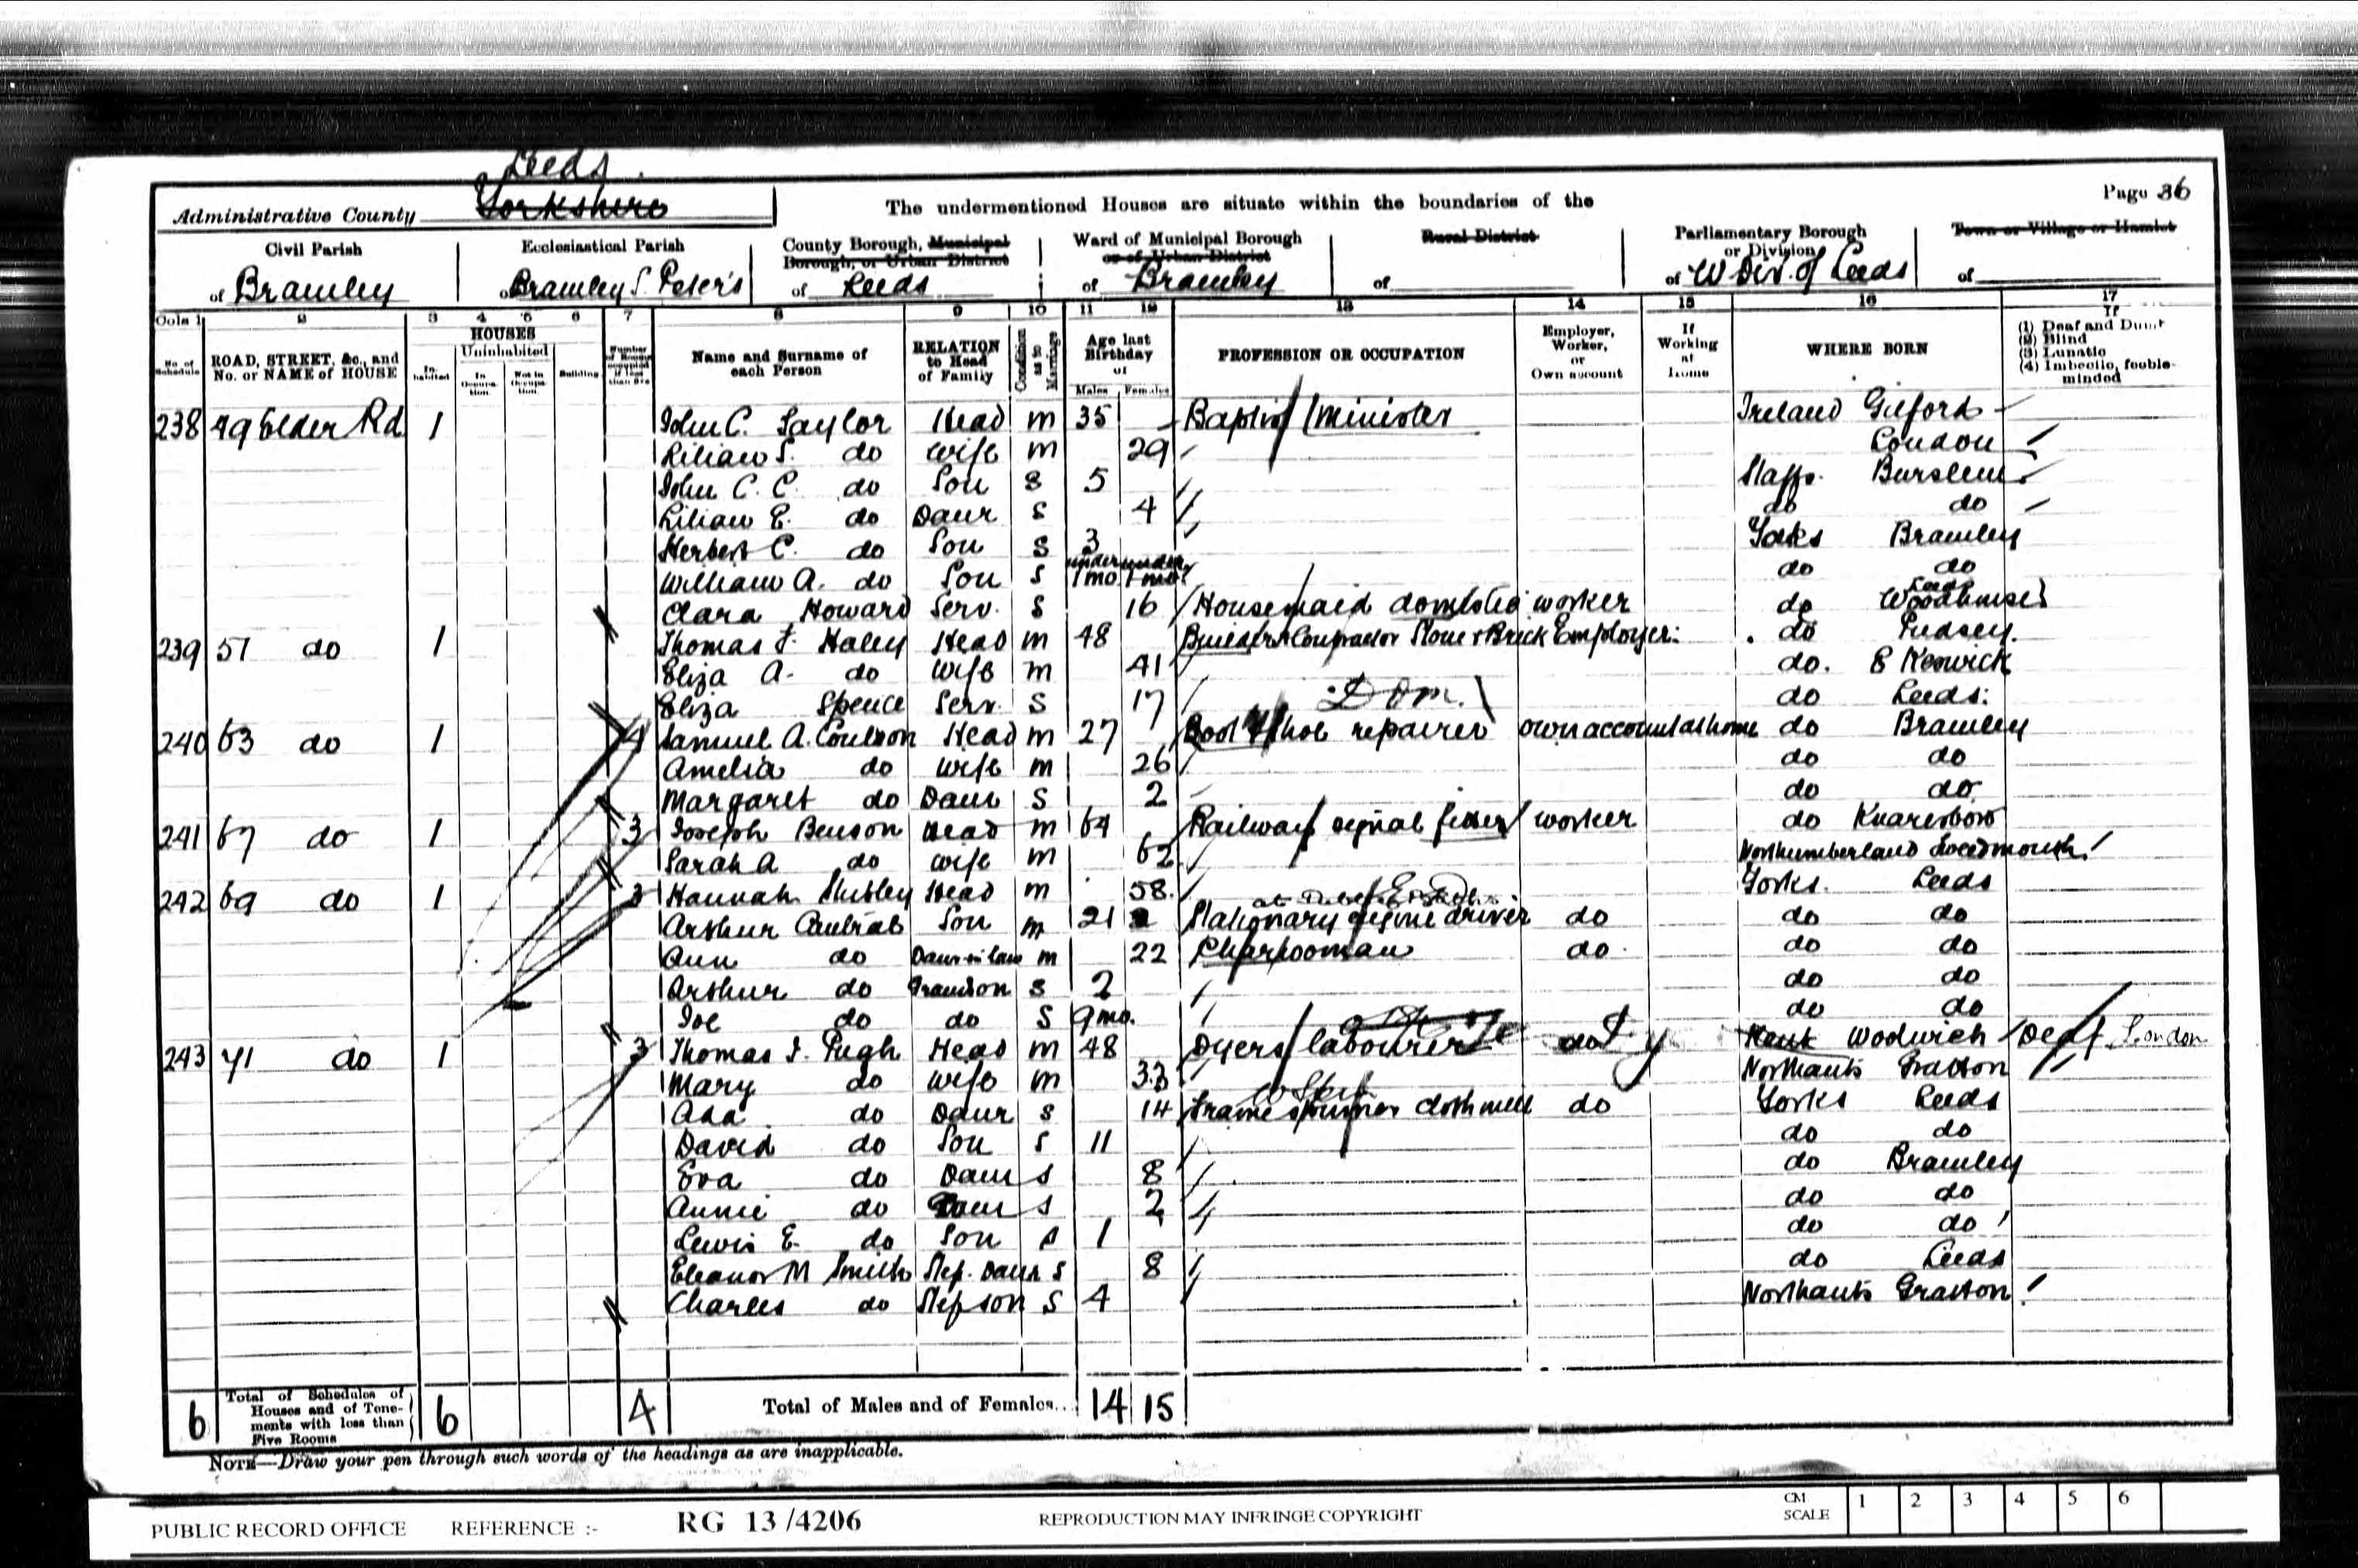 Leeds.
Administrative County Yorkshire The undermentioned Houses are situate within the boundaries of the Page 36
Civil Parish Ecclesiastical Parish County Borough, Municipal Borough, or Urban District Ward of Municipal Borough or of Urban District Rural District Parliamentary Borough or Division Town or Village or Hamlet
of Bramley of Bramley S. Peter's of Leeds of Bramley of of W Div. of Leeds of
Cols 1 2 3 4 5 6 7 8 9 10 11 12 13 14 15 16 17
No. of Schedule ROAD, STREET, &c., and No. or NAME of HOUSE HOUSES Inhabited Uninhabited In Occupation Not in Occupation Building Number of Rooms occupied if less than five Name and Surname of each Person RELATION to Head of Family Condition as to Marriage Age last Birthday of Males Females PROFESSION OR OCCUPATION Employer, Worker, or Own account If Working at home WHERE BORN If (1) Deaf and Dumb (2) Blind (3) Lunatic (4) Imbecile, feeble-minded
238 49 Elder Rd 1 John C. Taylor Head m 35 Baptist minister Ireland Gilford
Lilian S. do Wife m 29 London
John C. C. do Son S 5 Staffs. Burslem
Lilian E. do Daur S 4 do do
Herbert C. do Son S 3 Yorks Bramley
under under
William A. do Son S 1 mo 1 mo. do do
Leeds
Clara Howard Serv. S 16 Housemaid domestic worker do Woodhouse
239 57 do 1 Thomas F. Haley Head m 48 Builder & Contractor Stone & Brick Employer: do Pudsey.
Eliza A. do Wife m 41 do. E Keswick
Eliza Spence Serv. S 17 Dom. do Leeds:
240 63 do 1 4 Samuel A. Coulson Head m 27 Boot & Shoe repairer own account at home do Bramley
Amelia do Wife m 26 do do
Margaret do Daur S 2 do do
241 67 do 1 3 Joseph Benson Head m 64 Railway signal fitter worker do Knaresboro
Sarah A do Wife m 62 Northumberland Tweedmouth
242 69 do 1 3 Hannah Shibley Head m 58. Yorks. Leeds
Arthur do Son m 21 Stationary engine driver do do do
Ann do Daur in law m 22 Charwoman do do do
Arthur do Grandson S 2 do do
Joe do do S 9 mo. do do
243 71 do 1 3 Thomas J. Pugh Head m 48 Dyers labourer do Kent Woolwich Deaf London
Mary do Wife m 33 Northants Gratton
Ada do Daur S 14 Frame spinner cloth mill do Yorks Leeds
David do Son S 11 do do
Eva do Daur S 8 do Bramley
Annie do Daur S 2 do do
Lewis E. do Son S 1 do do
Eleanor M Smith Step. Daur S 8 do Leeds
Charles do Stepson S 4 Northants Gratton
6 Total of Schedules of Houses and of Tenements with less than Five Rooms 6 4 Total of Males and of Females... 14 15
NOTE—Draw your pen through such words of the headings as are inapplicable.
PUBLIC RECORD OFFICE REFERENCE :- RG 13/4206 REPRODUCTION MAY INFRINGE COPYRIGHT CM SCALE 1 2 3 4 5 6